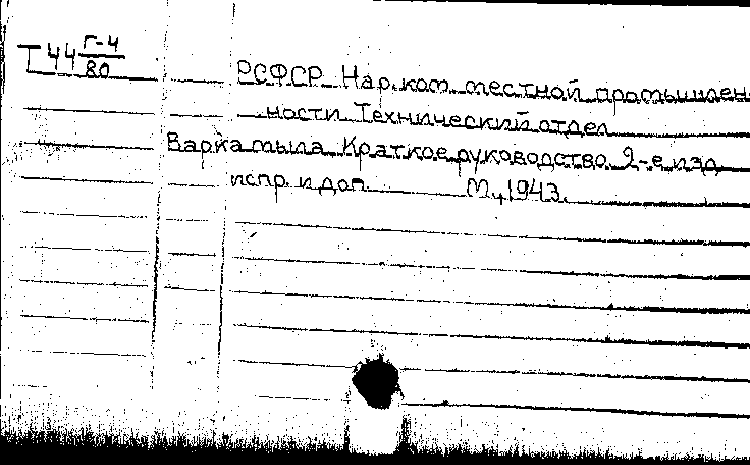 Т 44 Г-4/80
РСФСР Нар. ком. местной промышлен-
ности Технический отдел
Варка мыла Краткое руководство 2-е изд
испр. и доп. М., 1943.